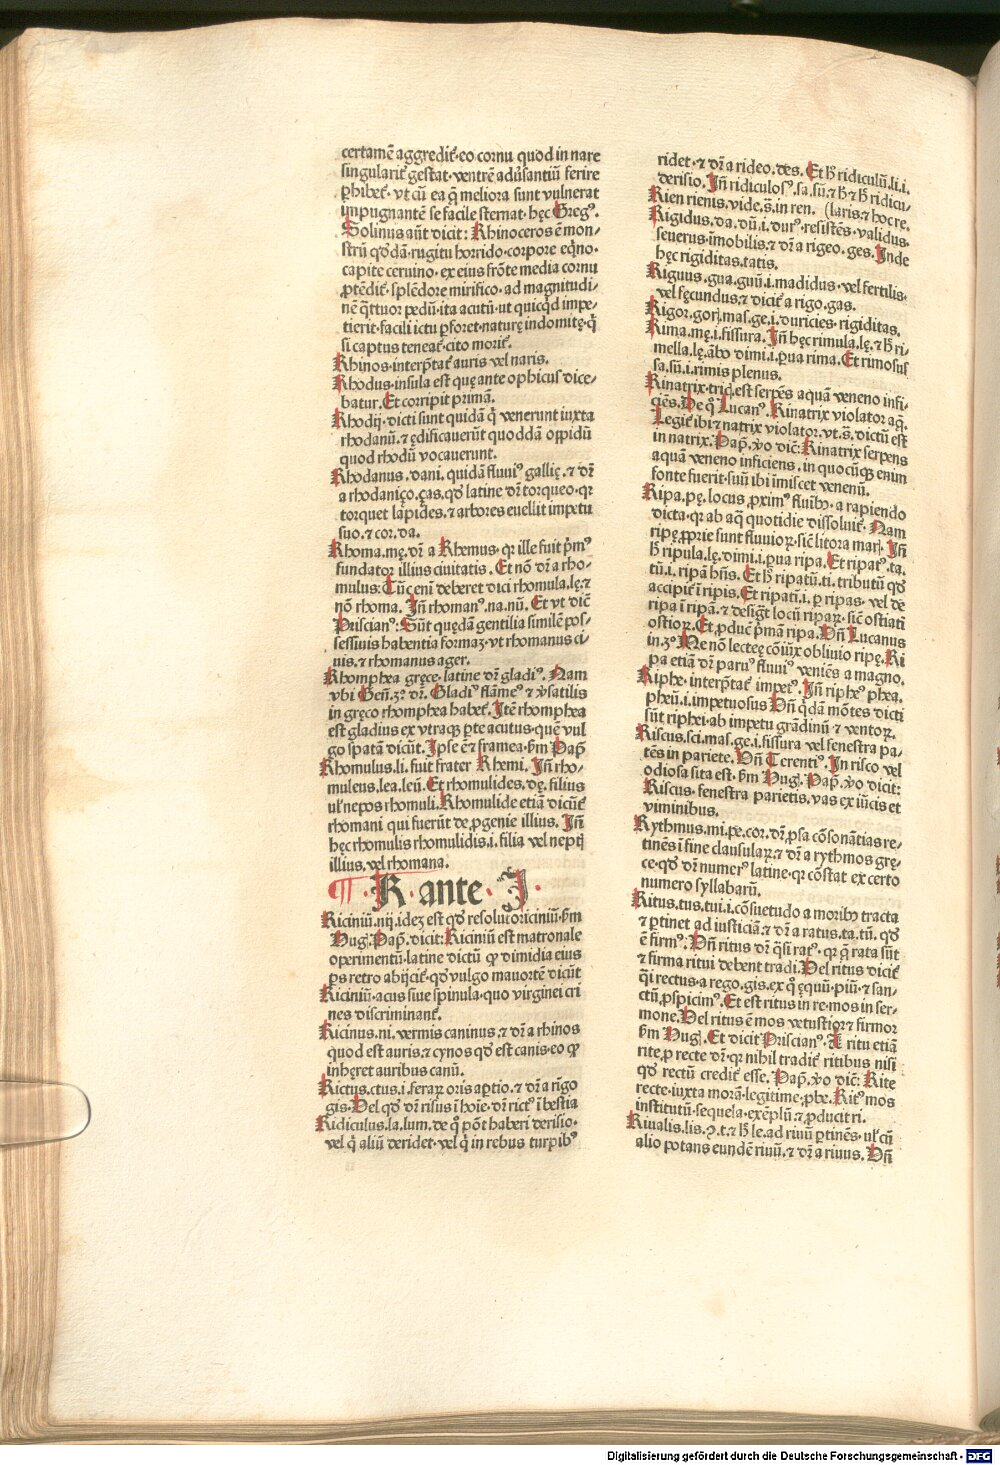 certamē aggredit᷑·eo cornu quod in nare
singularit᷑ gestat·ventrē adu̓santiū ferire
ꝑhibet᷑·vt cū ea q̄ meliora sunt vulnerat
impugnantē se facile sternat·hęc Greg⁹.
Solinus aūt dicit: Rhinoceros ē mon-
strū qd̓dā·rugitu horrido·corpore eq̇no·
capite ceruino·ex eius frōte media cornu
ꝓtēdit᷑·splēdore mirifico·ad magnitudi-
nē q̄ttuor pedū·ita acutū·ut quicq̇d impe-
tierit·facili ictu ꝑforet·naturę indomitę·q̇
si captus teneat᷑·cito morit᷑.
Rhinos·interp̄tat᷑ auris vel naris.
Rhodus·insula est quę ante ophicus dice-
batur. Et corripit primā.
Rhodij·dicti sunt quidā q̇ venerunt iuxta
rhodanū·⁊ ędificauerūt quoddā oppidū
quod rhodū vocauerunt.
Rhodanus·dani. quidā fluui⁹ gallię·⁊ dr̄
a rhodaniço·ças·qd̓ latine dr̄ torqueo·qr
torquet lapides·⁊ arbores euellit impetu
suo·⁊ cor. da.
Rhoma.mę. dr̄ a Rhemus·qr ille fuit p̄m⁹
fundator illius ciuitatis. Et nō dr̄ a rho-
mulus: Tūc eni̅ deberet dici rhomula.lę.⁊
nō rhoma. Jn̄ rhoman⁹.na.nū. Et vt dic̄
Priscian⁹: Sūt quędā gentilia similē pos-
sessiuis habentia formaꝫ·vt rhomanus ci-
uis·⁊ rhomanus ager.
Rhomphea gręce·latine dr̄ gladi⁹. Nam
vbi Gen̄.3º dr̄. Gladi⁹ flāme⁹ ⁊ v̓satilis
in gręco rhomphea habet᷑. Jtē rhomphea
est gladius ex vtraqꝫ ꝑte acutus·quē vul
go spatā dicūt. Jpse ē ⁊ framea·ẜm Pap̄
Rhomulus.li. fuit frater Rhemi. Jn̄ rho-
muleus.lea.leū. Et rhomulides.dę. filius
ul̓ nepos rhomuli. Rhomulide etiā dicūt᷑
rhomani qui fuerūt de ꝓgenie illius. Jn̄
hęc rhomulis rhomulidis.i.filia vel nepti̅
illius.vel rhomana.
¶ · R·ante· J ·
Riciniū.nij.ideꝫ est qd̓ resolui oriciniū·ẜm
Hug̓. Pap̄. dicit: Riciniū est matronale
operimentū·latine dictū ꝙ dimidia eius
ꝑs retro abijcit᷑·qd̓ vulgo mauortē dicūt
Riciniū·acus siue spinula·quo virginei cri
nes discriminant᷑.
Ricinus.ni. vermis caninus·⁊ dr̄ a rhinos
quod est auris·⁊ cynos qd̓ est canis·eo ꝙ
inhęret auribus canū.
Rictus.ctus.i.feraꝝ oris aꝑtio·⁊ dr̄ a ri̅go
gis. Vel qd̓ dr̄ risus i̅ hoi̅e·dr̄ rict⁹ i̅ bestia
Ridiculus.la.lum. de q̊ pōt haberi derisio·
vel q̇ aliū deridet·vel q̇ in rebus turpib⁹
ridet·⁊ dr̄ a rideo.des. Et ħ ridiculū.li.i.
derisio. Jn̄ ridiculos⁹.sa.sū.⁊ ħ ⁊ ħ ridicu-
Rien rienis.vide.s̄.in ren. (laris ⁊ hoc re.
Rigidus.da.dū.i.dur⁹·resistēs·validus·
seuerus·i̅mobilis.⁊ dr̄ a rigeo.ges. Jnde
hęc rigiditas.tatis.
Riguus.gua.guū.i.madidus·vel fertilis·
vel fęcundus.⁊ dicit᷑ a rigo.gas.
Rigor.gor̓.mas.ge.i.duricies·rigiditas.
Rima.mę.i.fissura. Jn̄ hęc rimula.lę.⁊ ħ ri-
mella.lę.ābo dimi.i.ꝑua rima. Et rimosus
sa.sū.i.rimis plenus.
Rinatrix·tric̓.est serpēs aquā veneno infi-
ciēs. De q̊ Lucan⁹. Rinatrix violator aq̄.
Legit᷑ ibi ⁊ natrix violator·vt.s̄.dictū est
in natrix. Pap̄. v̊o dic̄: Rinatrix serpens
aquā veneno inficiens·in quocūqꝫ enim
fonte fuerit·suū ibi imiscet venenū.
Ripa.pę. locus ꝓxim⁹ fluuiꝫ·a rapiendo
dicta·qr ab aq̄ quotidie dissoluit᷑. Nam
ripę ꝓprie sunt fluuioꝝ·sic̄ litora mar̓. Jn̄
ħ ripula.lę.dimi.i.ꝑua ripa. Et ripat⁹.ta.
tū.i.ripā hn̄s. Et ħ ripatū.ti.tributū qd̓
accipit᷑ i̅ ripis. Et ripati.i.ꝑ ripas·vel de
ripa i̅ ripā·⁊ design̄t locū ripaꝝ·sic̄ ostiati
ostioꝝ. Et ꝓducit p̄mā ripa. Vn̄ Lucanus
in.3º Me nō lecteę cōiu̅x obliuio ripę. Ri
pa etiā dr̄ paru⁹ fluui⁹ veniēs a magno.
Riphe·interp̄tat᷑ impet⁹. Jn̄ riphe⁹ phea.
pheū.i.impetuosus Vn̄ q̇dā mōtes dicti
sūt riphei·ab impetu grādinū ⁊ ventoꝝ.
Riscus.sci.mas.ge.i.fissura vel fenestra pa-
tēs in pariete. Vn̄ Terenti⁹. Jn risco vel
odiosa sita est·ẜm Hug̓. Pap̄. v̊o dicit:
Riscus·fenestra parietis·vas ex iūcis et
viminibus.
Rythmus.mi.pe.cor.dr̄ ꝓsa cōsonātias re-
tinēs i̅ fine clausulaꝝ·⁊ dr̄ a rythmos grę-
ce·qd̓ dr̄ numer⁹ latine·qr cōstat ex certo
numero syllabarū.
Ritus.tus.tui.i.cōsuetudo a moribꝫ tracta
⁊ ꝑtinet ad iusticiā·⁊ dr̄ a ratus.ta.tū. qd̓
ē firm⁹. Vn̄ ritus dr̄ q̄si rat⁹·qr q̄ rata sūt
⁊ firma ritui debent tradi. Vel ritus dicit᷑
q̄i rectus·a rego.gis.ex q̊ ęquū·piū·⁊ san-
ctū ꝓspicim⁹. Et est ritus in re·mos in ser-
mone. Vel ritus ē mos vetustior ⁊ firmor
ẜm Hug̓. Et dicit Priscian⁹. A ritu etiā
rite ꝓ recte dr̄·qr nihil tradit᷑ ritibus nisi
qd̓ rectū credit᷑ esse. Pap̄. v̊o dic̄: Rite
recte·iuxta morā·legitime·ꝓbe. Rit⁹ mos
institutū·sequela·exēplū·⁊ ꝓducit ri.
Riualis.lis.ꝯ.t.⁊ ħ le.ad riuū ꝑtinēs·ul̓ cū
alio potans eundē riuū.⁊ dr̄ a riuus. Vn̄
Digitalisierung gefördert durch die Deutsche Forschungsgemeinschaft - DFG